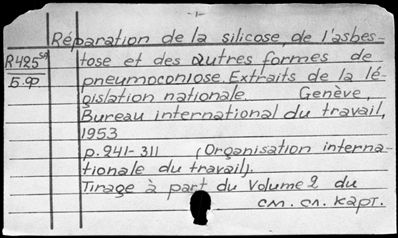 -1-
Réparation de la silicose, de l'asbes-
R425 ca tose et des autres formes de
Б.ф pneumoconiose. Extraits de la lé-
gislation nationale. Genève,
Bureau international du travail,
1953
p. 241-311 (Organisation interna-
tionale du travail).
Tirage à part du Volume 2 du
см. сл. карт.